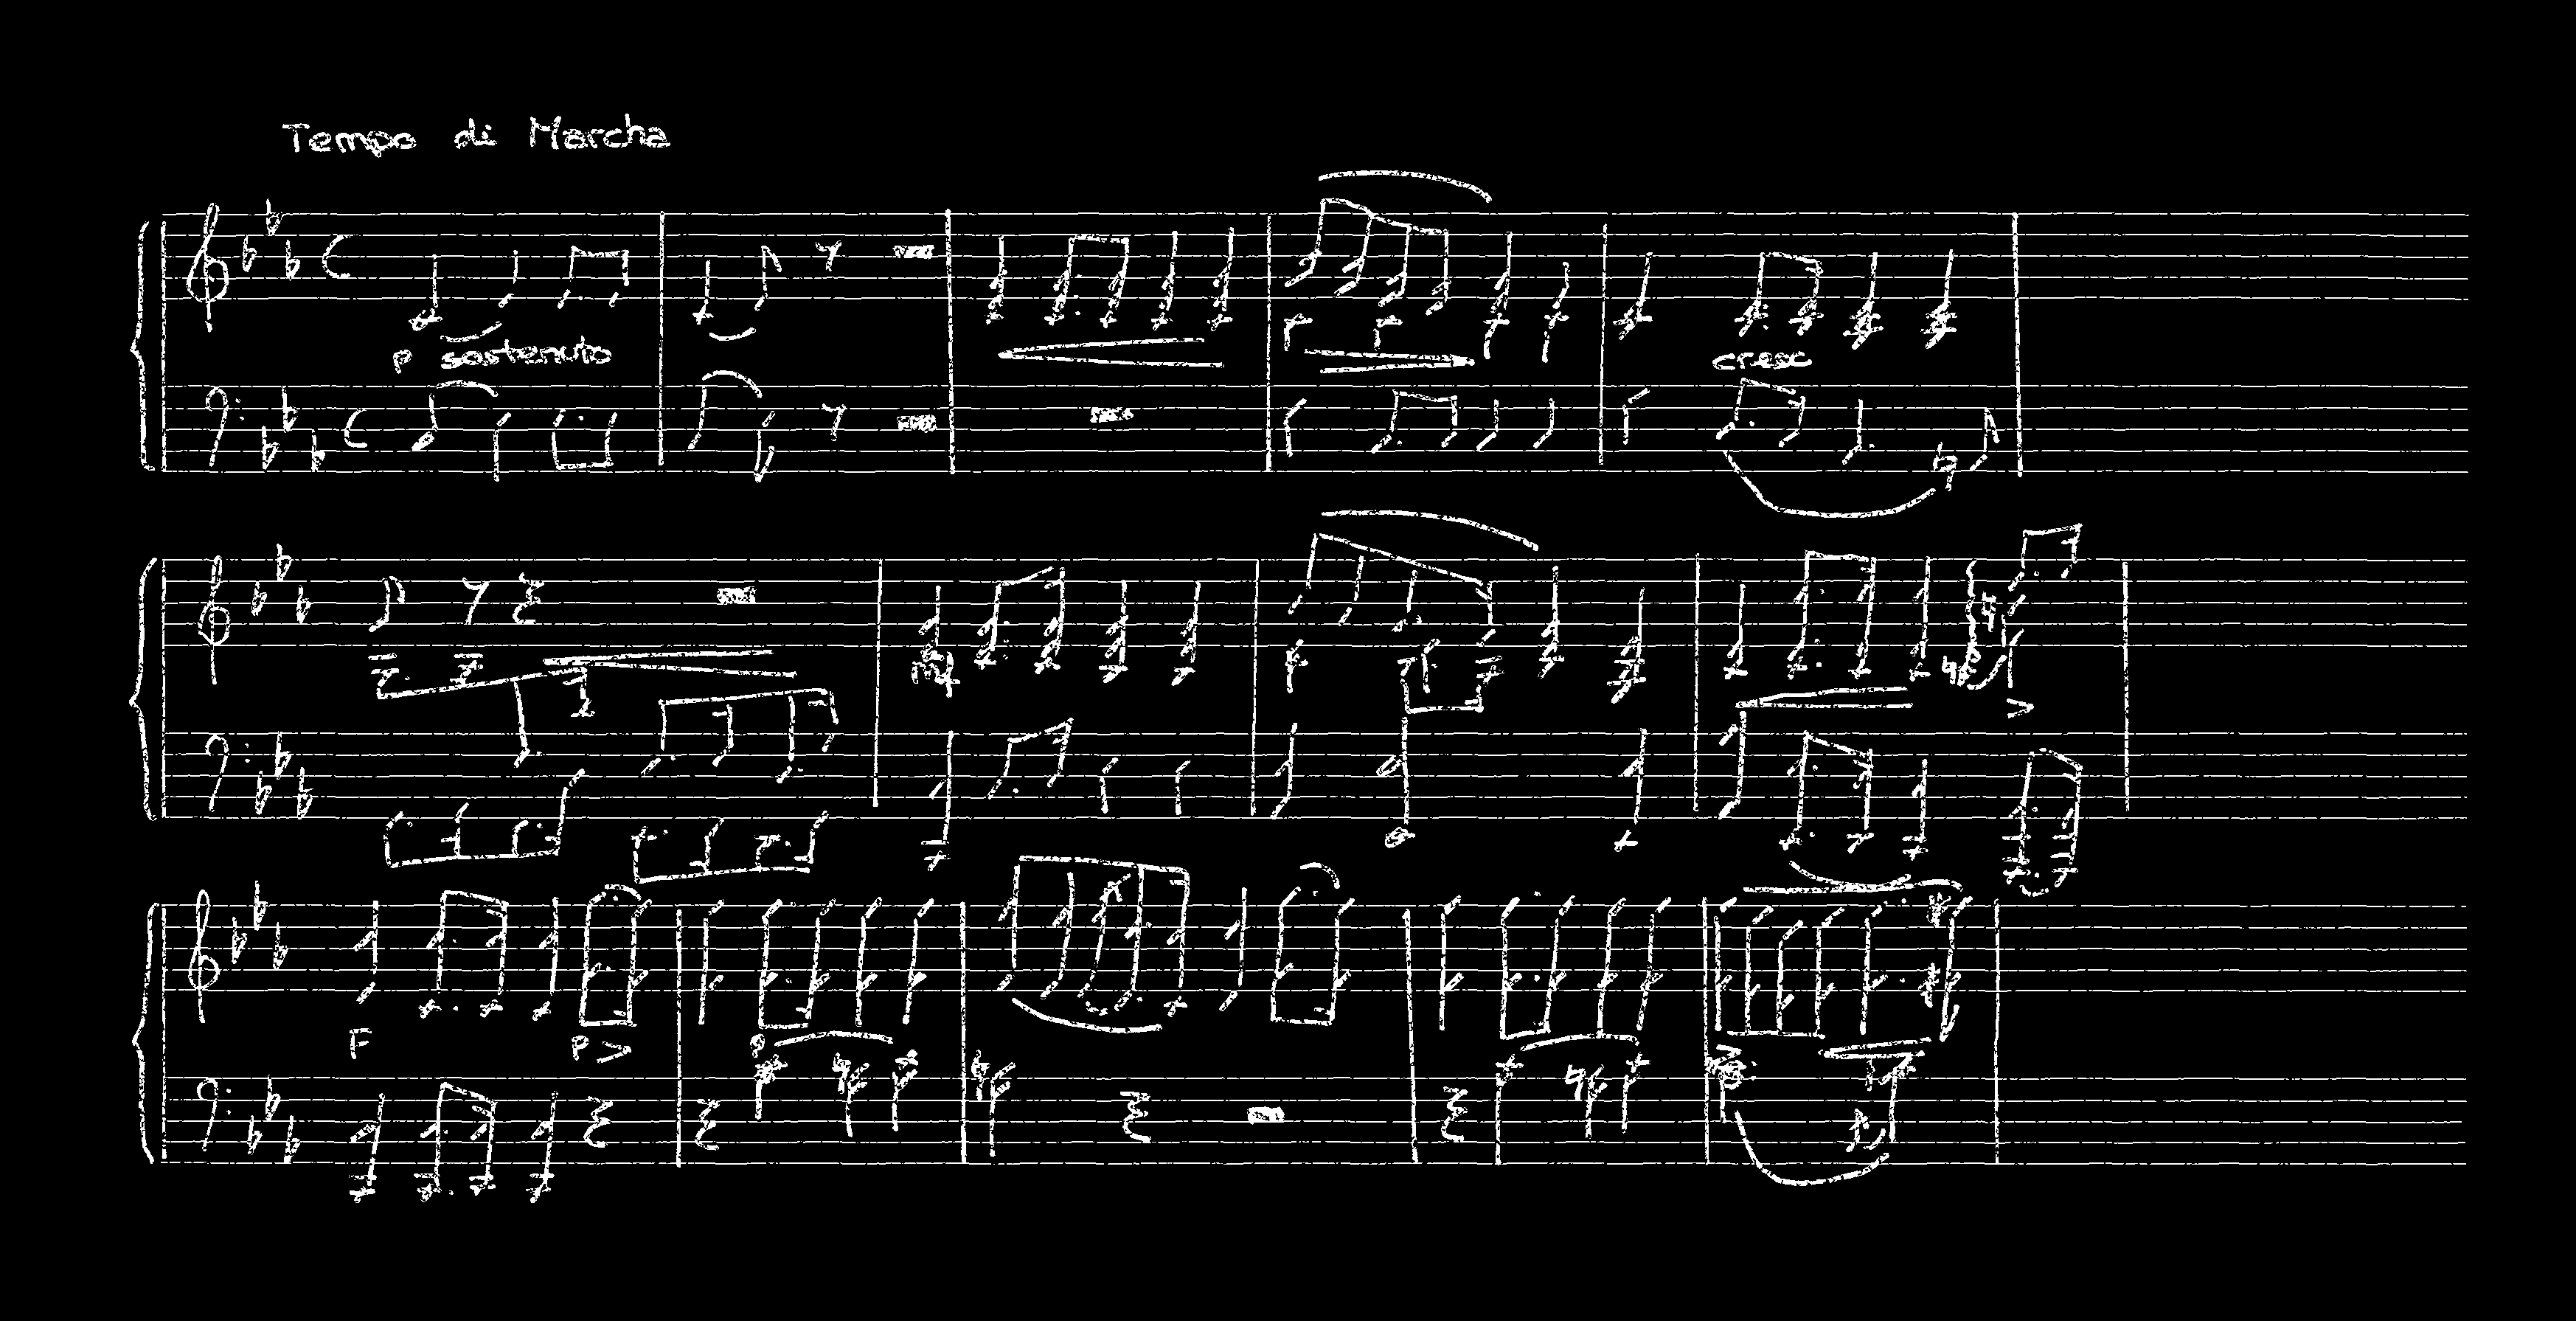 Tempo di Marcha
p sostenuto
cresc
mf
F
p
p